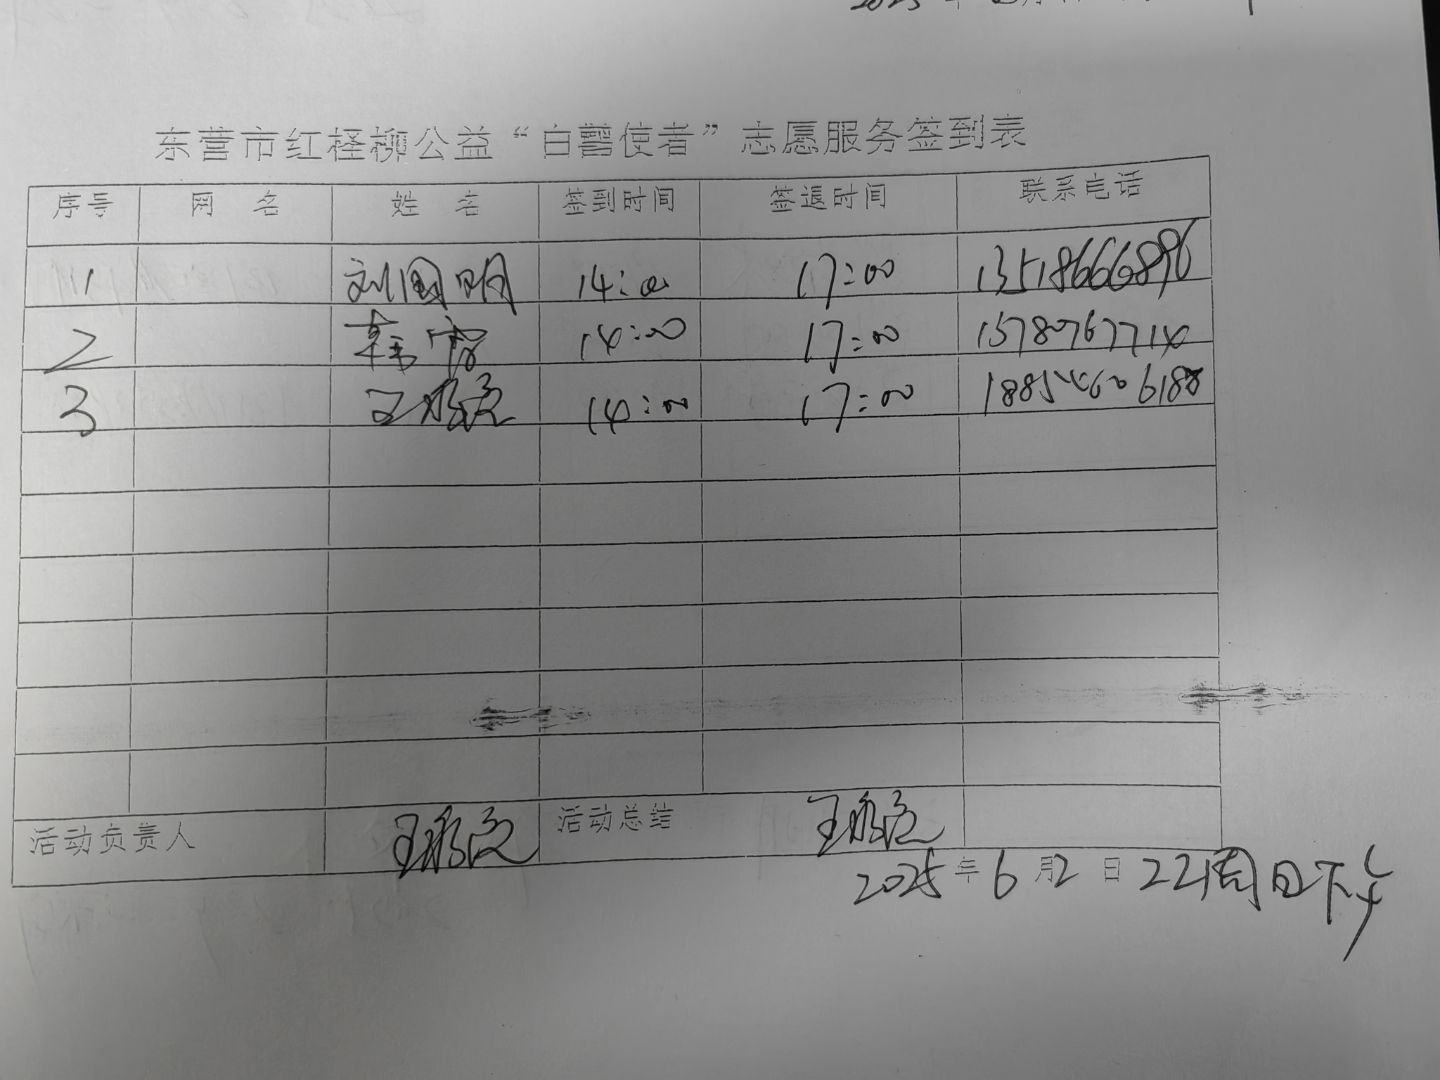 东营市红柽柳公益“白鹭使者”志愿服务签到表
序号 网 名 姓 名 签到时间 签退时间 联系电话
1 刘国明 14:00 17:00 13518666896
2 14:00 17:00 15780767714
3 14:00 17:00 18854606188
活动负责人 活动总结
2025年6月2日 22周日下午